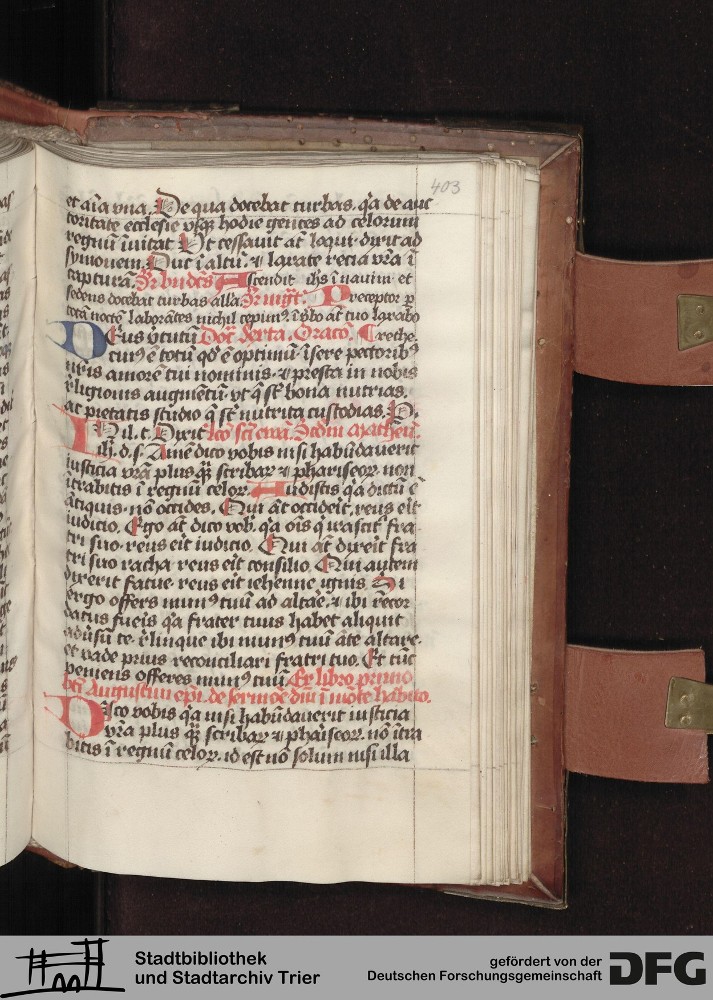 403
et aīa vna. De qua docebat turbas. q̄a de auc
toritate ecclesie vsq̄ȝ hodie gentes ad celorum
regnū īuitat Vt cessauit āt loqui dixit ad
symonem. Duc ī altū ⁊ laxate recia vr̄a ī
capturā. Ascendit ihs ī nauim et
sedens docebat turbas alla. Preceptor p̲
totā noctē laborātes nichil cepimꝰ. ī ṽbo āt tuo laxabo
Deus ṽtutū Doc̄ sexta. Oracō. 
cuiꝰ ē totū qd̕ ē optimū īsere pectoribꝰ
nr̄is amorē tui nominis. ⁊ presta in nobis
r̃ligionis augmētū. vt q̄ st̄ bona nutrias.
ac pietatis studio q̄ st̄ nutrita custodias. P.
Il. t. Dixit lcō scī ewā. Scd̄m Matheū.
ih̄. d. s. Amē dico vobis nisi habūdauerit
iusticia vr̄a plus q̄ȝ scribaꝝ ⁊ phariseoꝝ non
ītrabitis ī regnū celoꝝ. Audistis q̄a dictū ē
ātiquis. nō occides. Qui āt occideīt. reus eīt
iudicio. Ego āt dico vob̄. q̄a oīs q̄ irascit̄ fra
tri suo. reus eīt iudicio. Qui āt dixeīt fra
tri suo racha reus eīt consilio. Qui autem
dixerit fatue. reus eīt iehenne ignis. Si
ergo offers munꝰ tuū ad altāe. ⁊ ibi recor
datus fueīs q̄a frater tuus habet aliquit
adũsū te. r̃linque ibi munꝰ tuū āte altare.
et vade prius reconciliari fratri tuo. Et tūc
veniens offeres munꝰ tuū. Ex libro primo
bt̄i Augustini epī. de sermōe dn̄i ī mōte habito.
Dico vobis q̄a nisi habūdauerit iusticia
vr̄a plus q̄ȝ scribaꝝ ⁊ phaīseoꝝ. nō ītra
bitis ī regnū celoꝝ. id est nō solum nisi illa
Stadtbibliothek
und Stadtarchiv Trier
gefördert von der
Deutschen Forschungsgemeinschaft
DFG